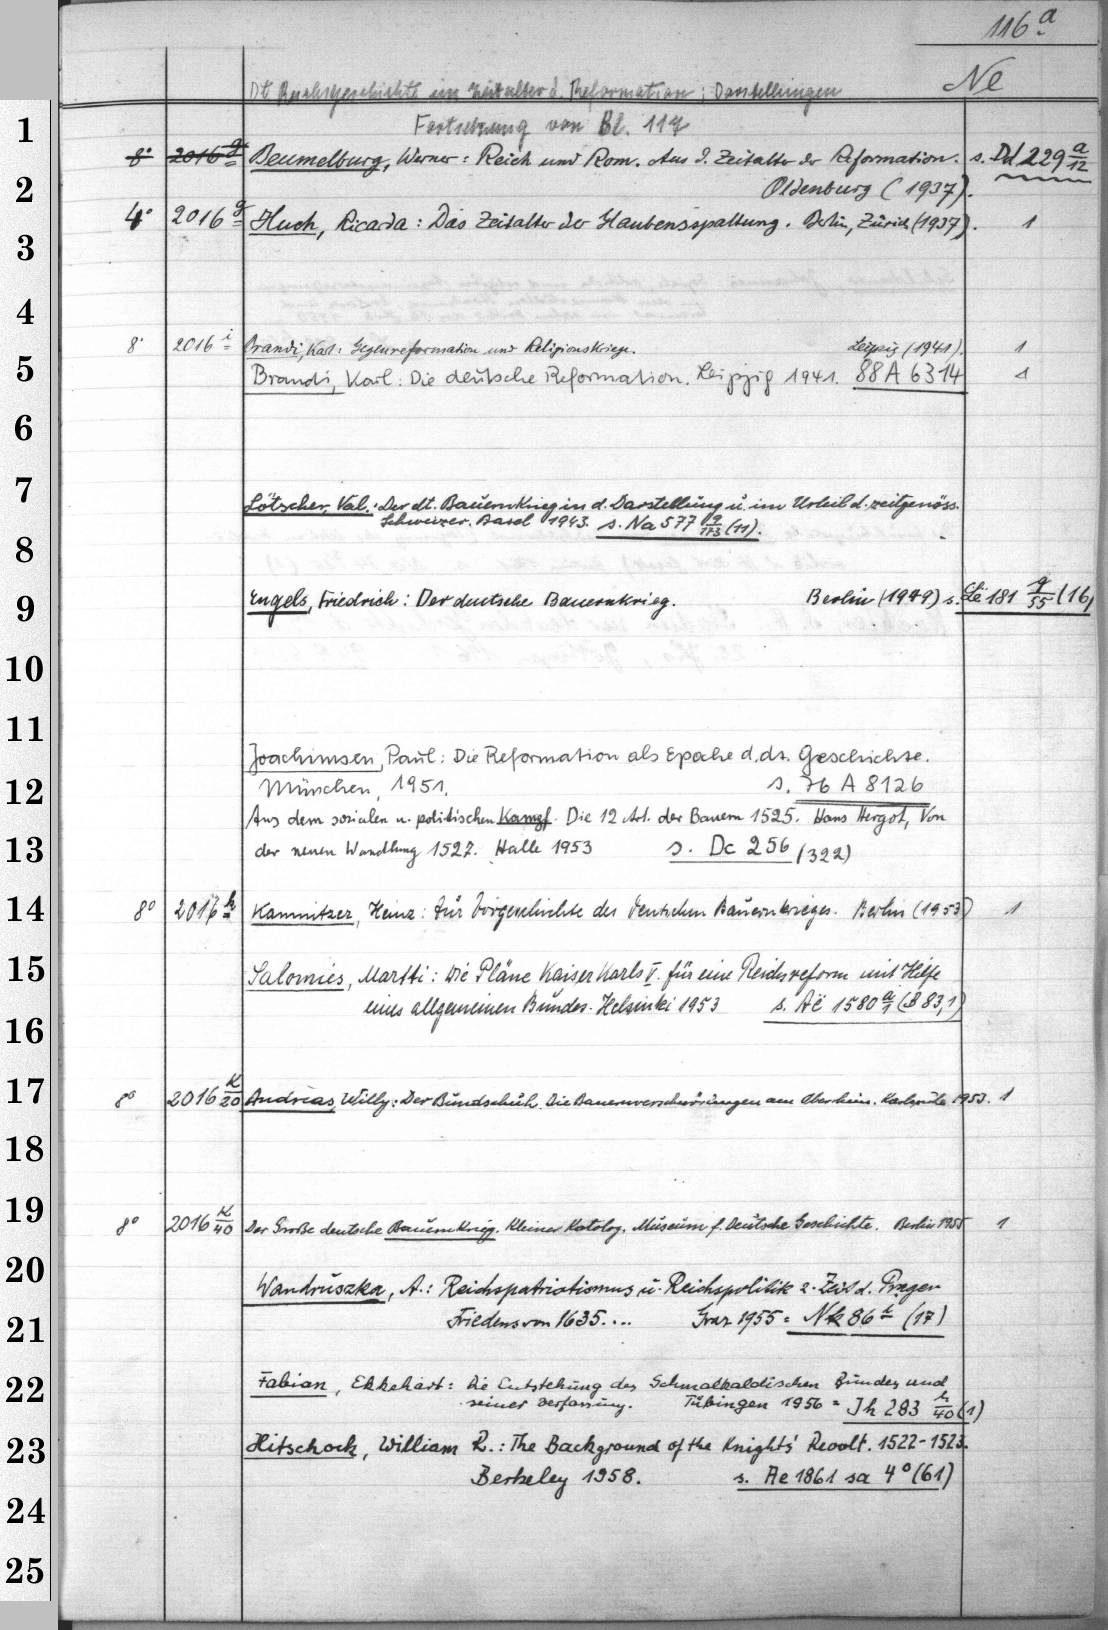 116 a
Ne
Dt. Reichsgeschichte im Zeitalter d. Reformation; Darstellungen
1
Fortsetzung von Bl. 117
8° 2016 g Beumelburg, Werner: Reich und Rom. Aus d. Zeitalter der Reformation. s. Dd 229 a/12
2
Oldenburg (1937).
4° 2016 g Huch, Ricarda: Das Zeitalter der Glaubensspaltung. Berlin, Zürich (1937). 1
3
4
8° 2016 i Brandi, Karl: Gegenreformation und Religionskriege. Leipzig (1941). 1
5
Brandi, Karl: Die deutsche Reformation. Leipzig 1941. 88 A 6314 1
6
7
Lötscher, Val.: Der dt. Bauernkrieg in d. Darstellung u. im Urteil d. zeitgenöss.
Schweizer. Basel 1943. s. Na 577 q/173 (11).
8
9
Engels, Friedrich: Der deutsche Bauernkrieg. Berlin (1949) s. Lë 181 g/55 (16)
10
11
Joachimsen, Paul: Die Reformation als Epoche d. dt. Geschichte.
12
München, 1951. s. 76 A 8126
Aus dem sozialen u. politischen Kampf. Die 12 Art. der Bauern 1525. Hans Hergot, Von
13
der neuen Wandlung 1527. Halle 1953 s. Dc 256 (322)
14
8° 2016 k Kamnitzer, Heinz: Zur Vorgeschichte des deutschen Bauernkrieges. Berlin (1953) 1
15
Salomies, Martti: Die Pläne Kaiser Karls V. für eine Reichsreform mit Hilfe
eines allgemeinen Bundes. Helsinki 1953 s. Aë 1580 a/1 (B 83,1)
16
17
8° 2016 K/20 Andreas, Willy: Der Bundschuh. Die Bauernverschwörungen am Oberrhein. Karlsruhe 1953. 1
18
19
8° 2016 K/40 Der Große deutsche Bauernkrieg. Kleiner Katalog. Museum f. Deutsche Geschichte. Berlin 1955 1
20
Wandruszka, A.: Reichspatriotismus u. Reichspolitik z. Zeit d. Prager
21
Friedens von 1635.... Graz 1955 = Nk 86 t (17)
22
Fabian, Ekkehart: Die Entstehung des Schmalkaldischen Bundes und
seiner Verfassung. Tübingen 1956 = Jh 283 h/40 (1)
23
Hitschock, William R.: The Background of the Knights' Revolt. 1522-1523.
Berkeley 1958. s. Ae 1861 sa 4° (61)
24
25